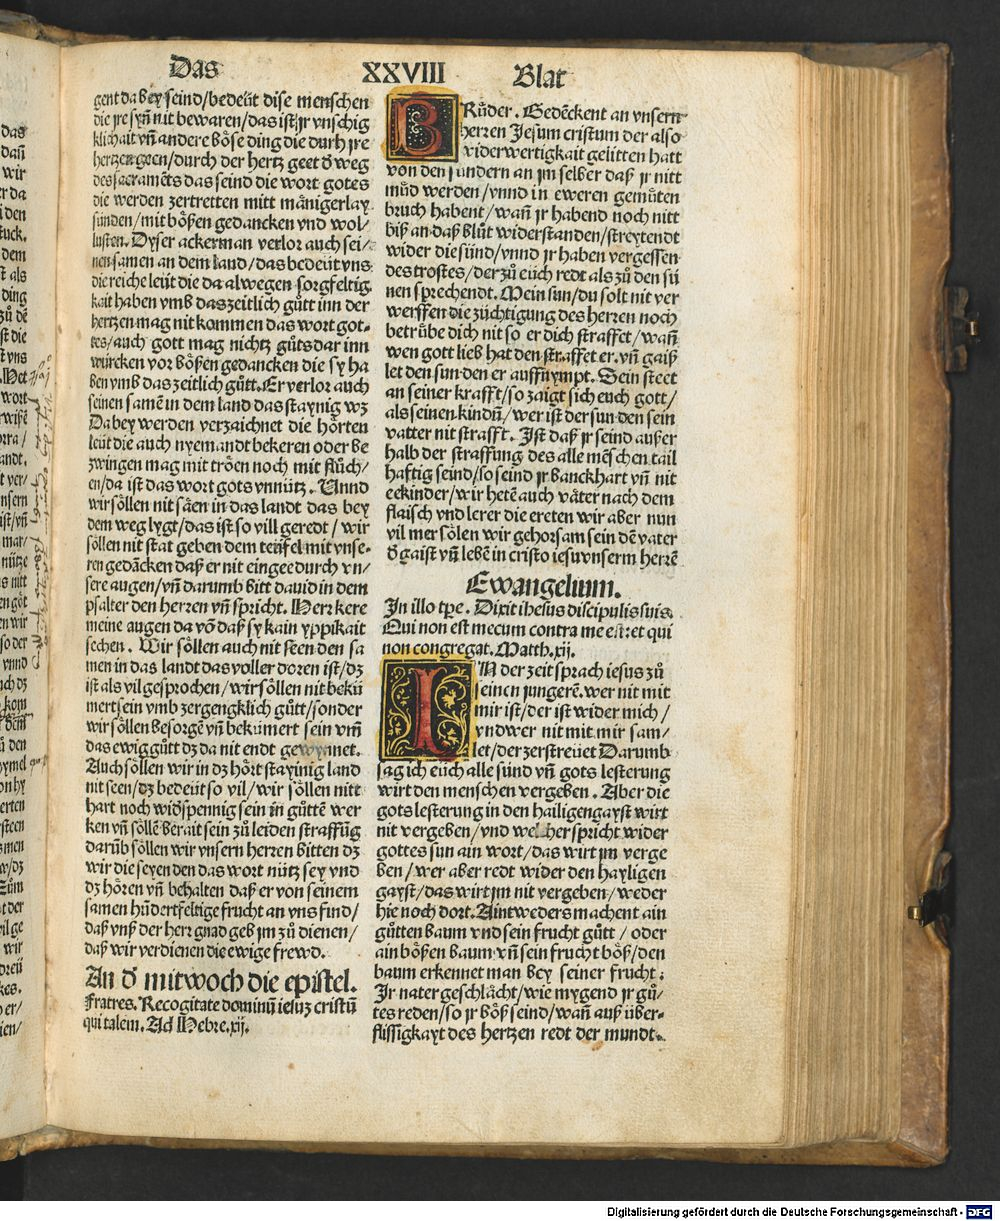 Das XXVIII Blat
gent da bey seind/bedeüt dise menschen
die jre syñ nit bewaren/das ist jr vnschig
klichait vñ andere böse ding die durh jre
hertzen geen/durch der hertz geet ð weg
des sacramēts das seind die wort gotes
die werden zertretten mitt mānigerlay
sünden/mit bößen gedancken vnd wol/
lusten. Dyser ackerman verlor auch sei/
nen samen an dem land/das bedeüt vns
die reiche leüt die da alwegen sorgfeltig
kait haben vmb das zeitlich gůtt inn der
hertzen mag nit kommen das wort got-
tes/auch gott mag nichtz gůts dar inn
würcken vor bößen gedancken die sy ha
ben vmb das zeitlich gůtt. Er verlor auch
seinen samē in dem land das staynig wz
Da bey werden verzaichnet die hörten
leüt die auch nyemandt bekeren oder be
zwingen mag mit tröen noch mit flůch/
en/da ist das wort gots vnnütz. Vnnd
wir söllen nit säen in das landt das bey
dem weg lygt/das ist so vill geredt/wir
söllen nit stat geben dem teüfel mit vnse-
ren gedācken daß er nit eingee durch vn/
sere augen/vñ darumb bitt dauid in dem
psalter den herren vñ spricht. Herr kere
meine augen da vō daß sy kain yppikait
sechen. Wir söllen auch nit seen den sa
men in das landt das voller doren ist/dz
ist als vil gesprochen/wir söllen nit bekü
mert sein vmb zergengklich gůtt/sonder
wir söllen besorgē vñ bekümert sein vm̄
das ewig gůtt dz da nit endt gewynnet.
Auch söllen wir in dz hört stayinig land
nit seen/dz bedeüt so vil/wir söllen nitt
hart noch widspennig sein in gůttē wer
ken vñ söllē berait sein zů leiden straffūg
darūb söllen wir vnsern herren bitten dz
wir die seyen den das wort nütz sey vnd
dz hören vñ behalten daß er von seinem
samen hūdertfeltige frucht an vns find/
daß vnß der herr gnad geb jm zů dienen/
daß wir verdienen die ewige frewd.
An ð mitwoch die epistel.
Fratres. Recogitate dominū iesuz cristū
qui talem. Ad Hebre.xij.
BRůder. Gedēckent an vnsern
herren Jesum cristum der also
widerwertigkait gelitten hatt
von den sundern an jm selber daß jr nitt
můd werden/vnnd in eweren gemůten
bruch habent/wañ jr habend noch nitt
biß an daß blůt widerstanden/streytendt
wider die sünd/vnnd jr haben vergessen
des trostes/der zů eüch redt als zů den sü
nen sprechendt. Mein sun/du solt nit ver
werffen die züchtigung des herren noch
betrůbe dich nit so er dich straffet/wañ
wen gott lieb hat den straffet er. vñ gaiß
let den sun den er auffnympt. Sein steet
an seiner krafft/so zaigt sich euch gott/
als seinen kindñ/wer ist der sun den sein
vatter nit strafft. Ist daß jr seind außer
halb der straffung des alle mēschen tail
hafftig seind/so seind jr banckhart vñ nit
eekinder/wir hetē auch väter nach dem
flaisch vnd lerer die ereten wir aber nun
vil mer sölen wir gehorsam sein dē vater
ð gaist vñ lebē in cristo iesu vnserm herrē
Ewangelium.
In illo tpe. Dixit ihesus discipulis suis.
Qui non est mecum contra me est:et qui
non congregat. Matth.xij.
IN der zeit sprach iesus zů
seinen jungerē. wer nit mit
mir ist/der ist wider mich/
vnd wer nit mit mir sam/
let/der zerstreüet Darumb
sag ich eüch alle sünd vñ gots lesterung
wirt den menschen vergeben. Aber die
gots lesterung in den hailigen gayst wirt
nit vergeben/vnd welcher spricht wider
gottes sun ain wort/das wirt jm verge
ben/wer aber redt wider den hayligen
gayst/das wirt jm nit vergeben/weder
hie noch dort. Aintweders machent ain
gůtten baum vnd sein frucht gůtt/oder
ain bößen baum vñ sein frucht böß/den
baum erkennet man bey seiner frucht:
Jr nater geschlächt/wie mygend jr gů/
tes reden/so jr böß seind/wañ auß über-
flissigkayt des hertzen redt der mundt.
Digitalisierung gefördert durch die Deutsche Forschungsgemeinschaft - DFG